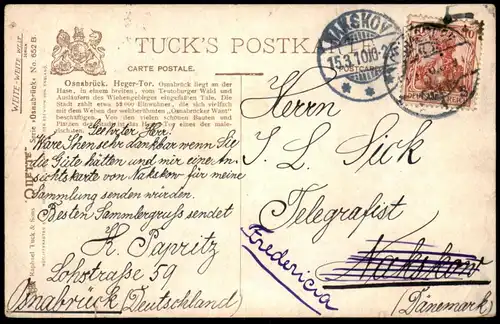 TUCK'S POSTKA
CARTE POSTALE.
WEITE-WEITE-WELT
Serie „Osnabrück“ No. 652 B.
Raphael Tuck & Sons
Osnabrück. Heger-Tor. Osnabrück liegt an der
Hase, in einem breiten, vom Teutoburger Wald und
Ausläufern des Wiehengebirges eingefaßten Tale. Die
Stadt zählt etwa 52 000 Einwohner, die sich vielfach
mit dem Weben der weltberühmten „Osnabrücker Want“
beschäftigen. Von den vielen schönen Bauten und
Plätzen der ist das Heger-Tor eins der
malerischsten.
NAKSKOV
15.3.10
Geehrter Herr.
Wäre Ihnen sehr dankbar wenn Sie
die Güte hätten und mir eine An-
sichtskarte von Nakskow für meine
Sammlung senden würden.
Besten Sammlergruss sendet
H. Papritz
Lohstraße 59
Osnabrück (Deutschland)
Herrn
J. L. Sick
Telegrafist
Nakskow
Fredericia
(Dänemark)